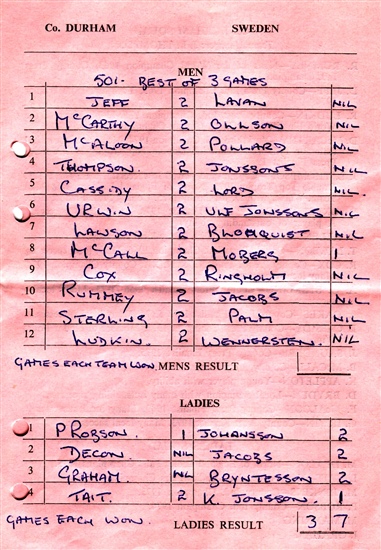 Co. DURHAM SWEDEN
MEN
501. BEST OF 3 GAMES
1 JEFF 2 LAVAN NIL
2 McCARTHY 2 OLLSON NIL
3 McALOON 2 POLLARD NIL
4 THOMPSON. 2 JONSSONS NIL
5 CASSIDY 2 LORD NIL.
6 URWIN 2 ULF JONSSONS NIL
7 LAWSON 2 BLOMQUIST NIL
8 McCALL 2 MOBERG 1
9 COX 2 RINGHOLM NIL
10 RUMMEY 2 JACOBS NIL
11 STERLING 2 PALM NIL
12 LUDKIN. 2 WENNERSTEN. NIL
GAMES EACH TEAM WON. MENS RESULT
LADIES
1 P ROBSON. 1 JOHANSSON 2
2 DECON. NIL JACOBS 2
3 GRAHAM. NIL BRYNTESSON 2
4 TAIT. 2 K. JONSSON. 1
GAMES EACH WON. LADIES RESULT 3 7